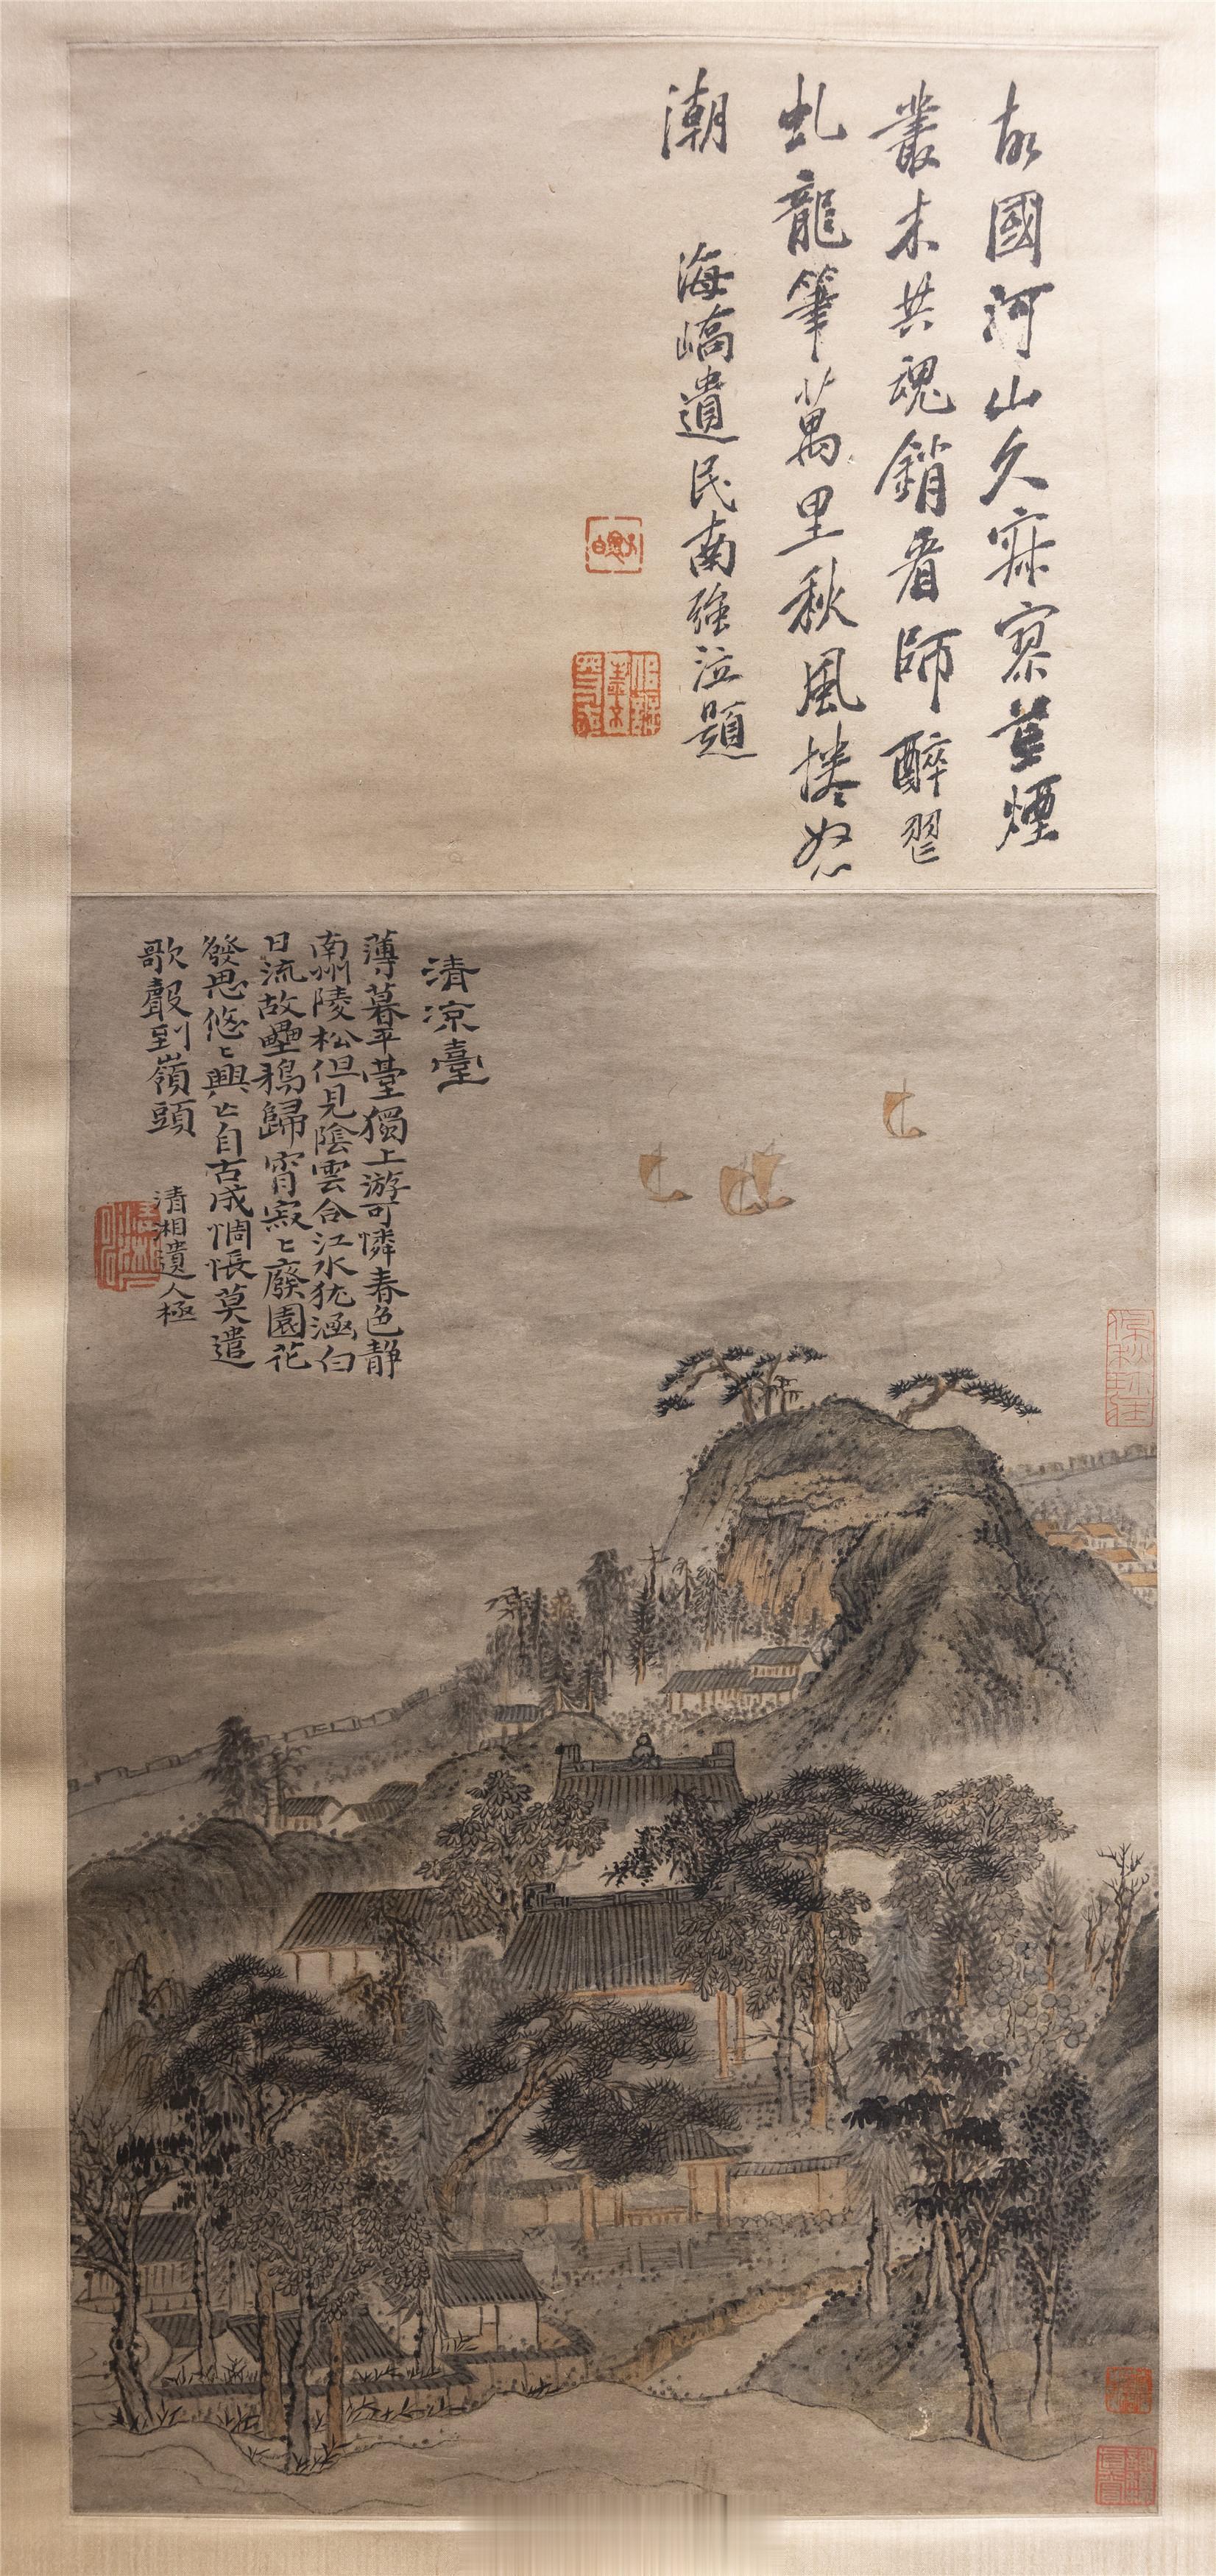 故國河山久寂寥荒煙
叢木共魂銷看師醉墨
虬龍筆萬里秋風捲怒
潮
海嶠遺民南強泣題
清凉臺
薄暮平臺獨上游可憐春色静
南州陵松但見陰雲合江水犹涵白
日流故壘鴉歸宵寂〻廢園花
發思悠〻興亡自古成惆悵莫遣
歌聲到嶺頭
清湘遺人極